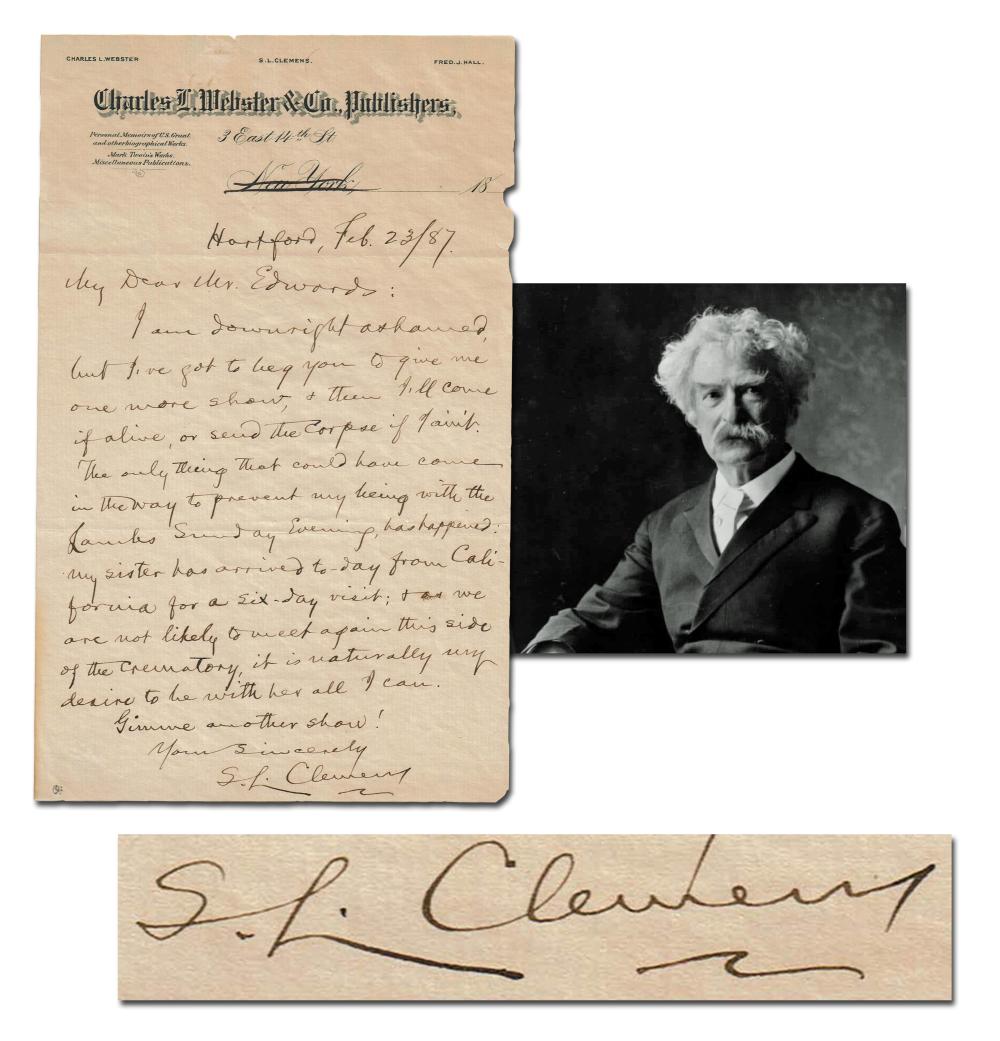 CHARLES L. WEBSTER
S. L. CLEMENS.
FRED. J. HALL.
Charles L. Webster & Co., Publishers,
Personal Memoirs of U.S. Grant
and other biographical Works.
Mark Twain's Works.
Miscellaneous Publications.
3 East 14th St
New York, 18
Hartford, Feb. 23/87.
My Dear Mr. Edwards:
I am downright ashamed,
but I've got to beg you to give me
one more show, & then I'll come
if alive, or send the corpse if I ain't.
The only thing that could have come
in the way to prevent my being with the
Lambs Sunday Evening, has happened:
my sister has arrived to-day from Cali-
fornia for a six-day visit; & as we
are not likely to meet again this side
of the crematory, it is naturally my
desire to be with her all I can.
Gimme another show!
Yours Sincerely
S. L. Clemens
S. L. Clemens